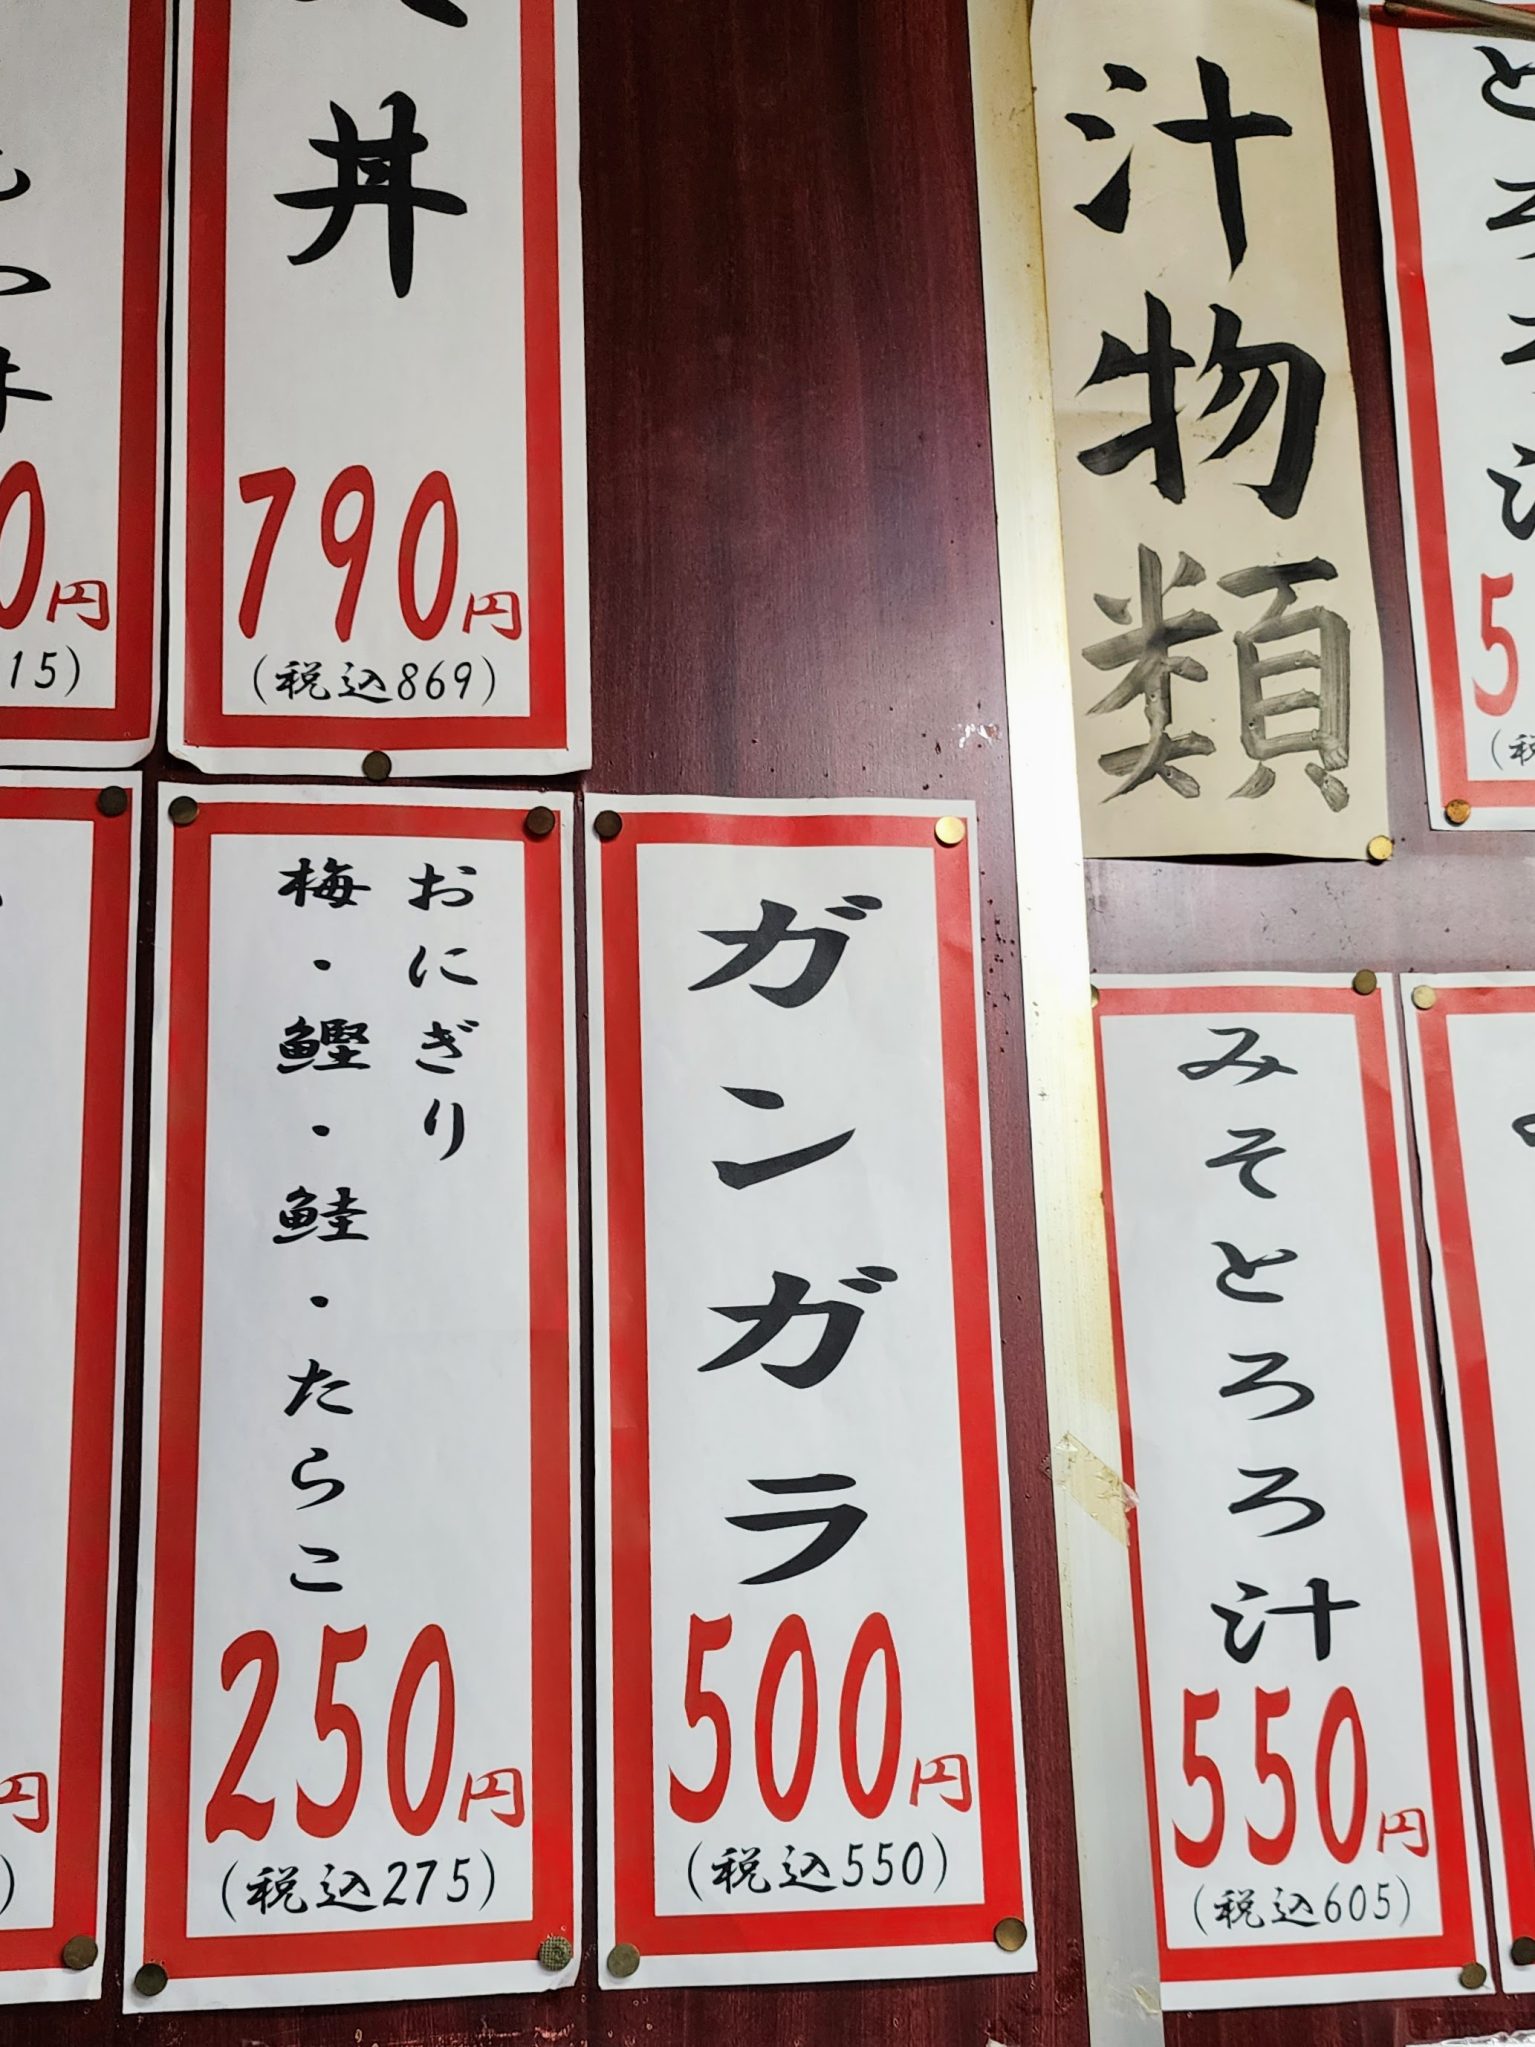 丼
790円
(税込869)
おにぎり
梅・鰹・鮭・たらこ
250円
(税込275)
ガンガラ
500円
(税込550)
汁物類
みそとろろ汁
550円
(税込605)
0円
15)
円
とろろ汁
5
(税